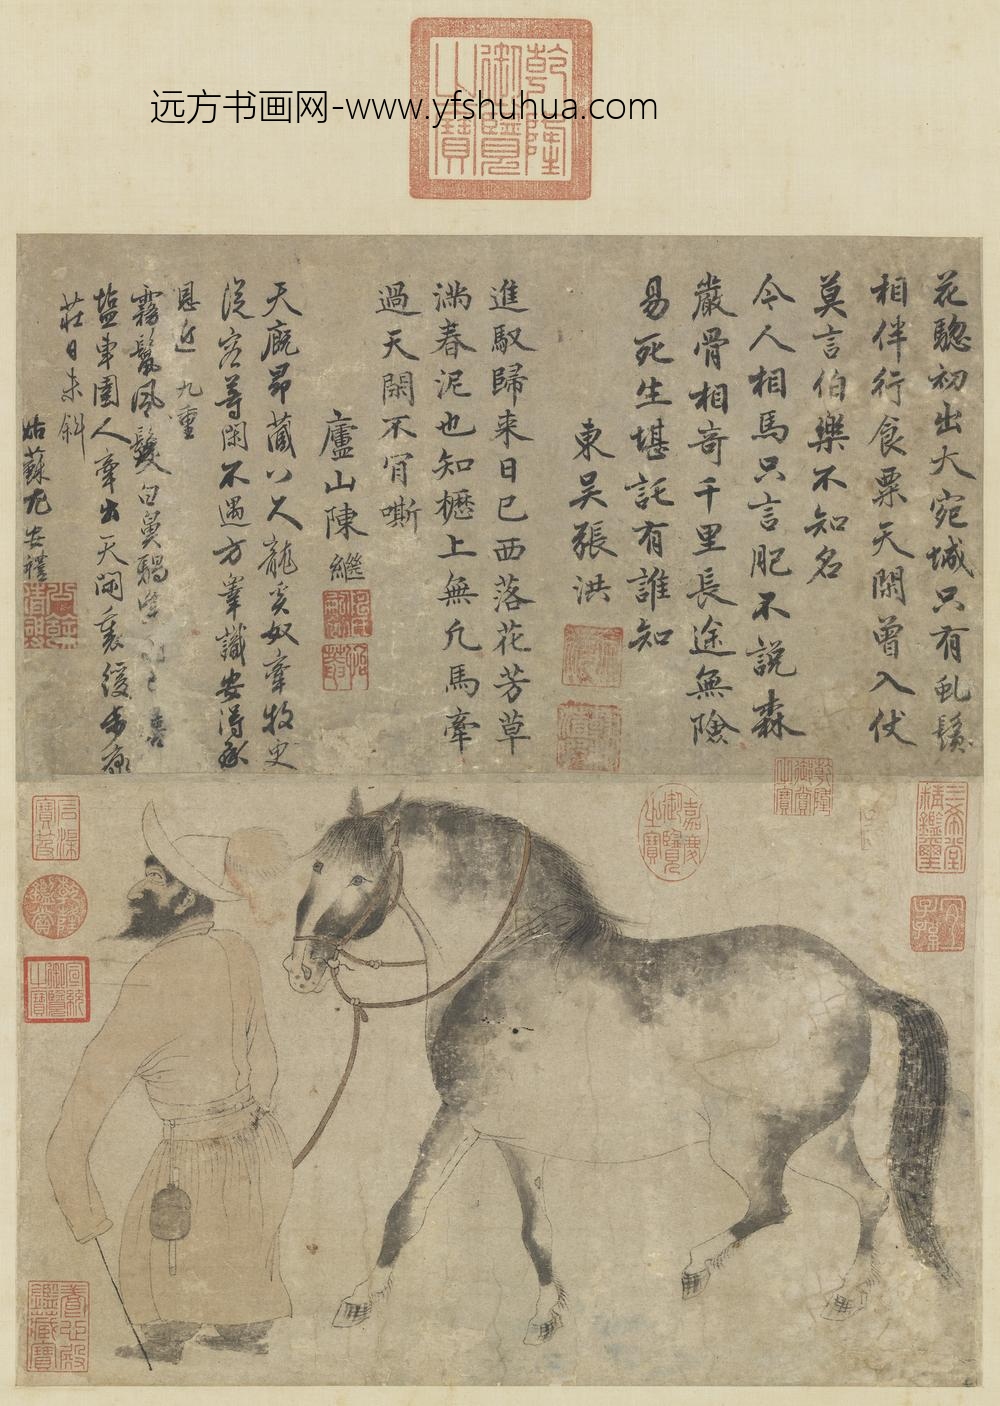 远方书画网-www.yfshuhua.com
乾隆御覽之寶
花驄初出大宛城只有虬鬚
相伴行食粟天閑曾入伏
莫言伯樂不知名
令人相馬只言肥不說森
嚴骨相奇千里長途無險
易死生堪託有誰知
東吳張洪
進馭歸来日已西落花芳草
滿春泥也知櫪上無凡馬牽
過天閑不肎嘶
廬山陳繼
天廐昂藏八尺龍奚奴牽牧史
從容等閑不遇方皋識安得承
恩近九重
霧鬣風鬉白鼻騧
塩車圉人牽出天閑裏緩步
莊日未斜
姑蘇尤安禮
嘉慶御覽之寶
乾隆御賞之寶
三希堂精鑑璽
宜子孫
石渠寶笈
乾隆鑑賞
宣統御覽之寶
養心殿鑑藏寶